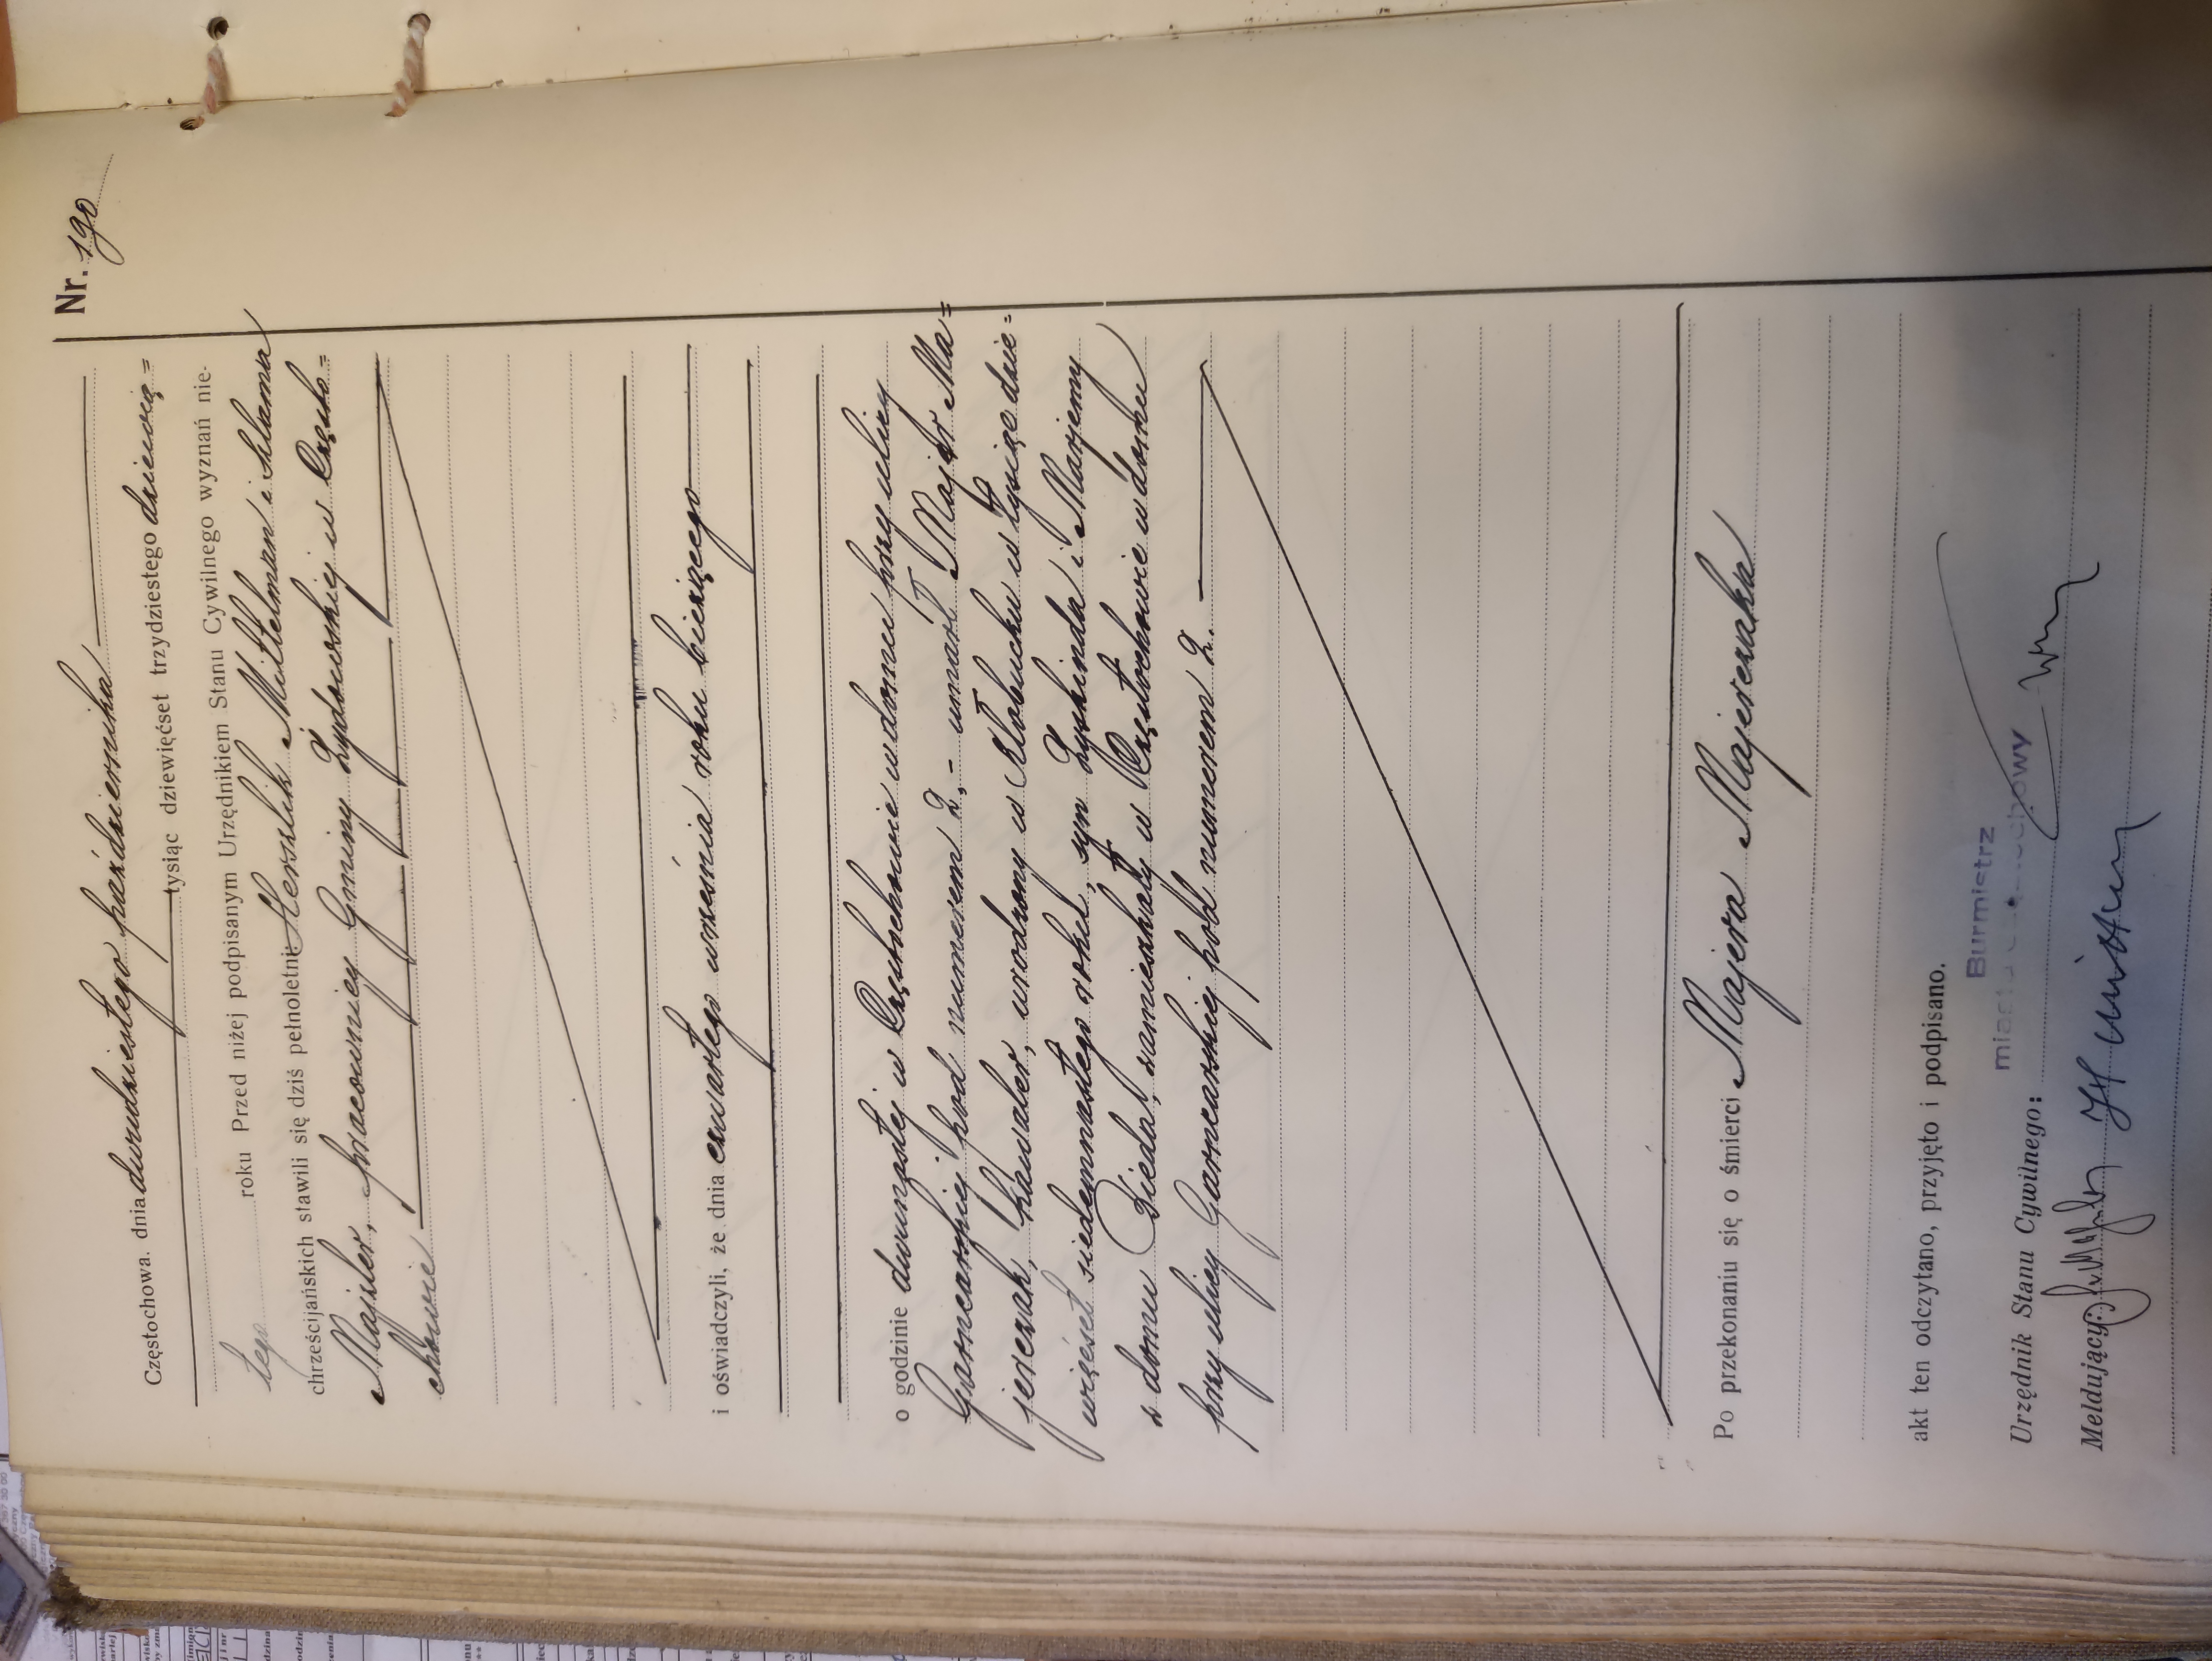 Nr. 190
Częstochowa. dnia dwudziestego października
tysiąc dziewięćset trzydziestego dziewią=
tego roku Przed niżej podpisanym Urzędnikiem Stanu Cywilnego wyznań nie-
chrześcijańskich stawili się dziś pełnoletni: Herszlik Mittelman i Szlama
Majtler, pracownicy Gminy Żydowskiej w Często=
chowie
i oświadczyli, że dnia czwartego września roku bieżącego
o godzinie dwunastej w Częstochowie w domu przy ulicy
Garncarskiej pod numerem 2,- umarł Majer Ma=
jerczak, kawaler, urodzony w Kłobucku w tysiąc dzie=
więćset siedemnastego roku, syn Zyskinda i Marjemy
z domu Ziedal, zamieszkały w Częstochowie w domu
przy ulicy Garncarskiej pod numerem 2.
Po przekonaniu się o śmierci Majera Majerczaka
akt ten odczytano, przyjęto i podpisano.
Burmistrz
Urzędnik Stanu Cywilnego:
Meldujący: